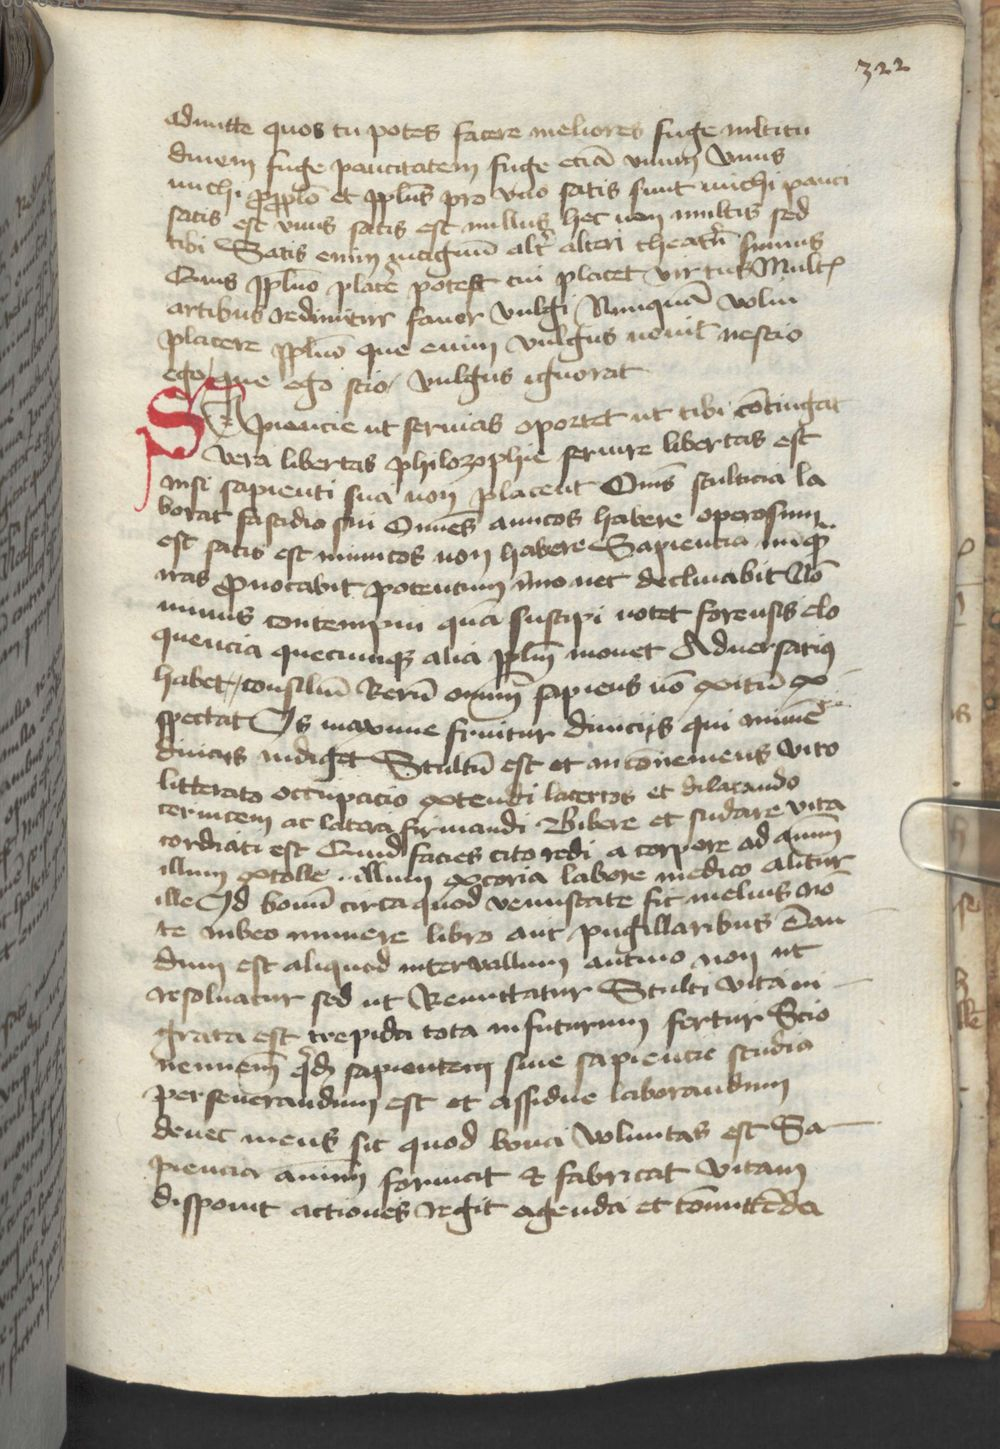 322
admitte quos tu potes facere meliores fuge mltitu
dinem fuge paucitatem fuge eciā vnum Vnus
michi ꝓ pplo et pplus pro vno satis sunt michi pauci
satis est vnus satis est nullus hec non multis sed
tibi Satis enim magnū alt̉ alteri theatrū sumus
Quis pplo placē potest cui placet virtus Mult
artibus redimitur favor vulgi Nunquā volui
placere pplo que enim vulgus novit nescio
ego que ego scio vulgus ignorat
Sapiencie ut servias oportet ut tibi cōtingat
vera libertas philozophie servire libertas est
nisi sapienti sua non placent Omīs stulticia la
borat fastidio sui Omnes amicos habere operosum
est satis est inimicos non habere Sapiencia nūqꝫ
iras ꝓvocabit potentum īmo nec declinabit Nō
minus contempni quā suscipi nocet forensis elo
quencia quecumqꝫ alia pplm movet Adversariꝰ
habet consiliū Rerū omnium sapiens nō exitū ex
spectat Is maxime fruitur diuicijs qui minīe
diuicijs indiget Stultū est et inconveniens viro
litterato occupacio extendi lacertos et dilatando
cervicem ac latera firmandi Bibere et sudare vita
cordiaci est Quid facies cito redi a corpore ad animū
illum extolle illum excoria labore medico alitur
ille Id bonū circa quod venustate fit melius nō
te iubeo inmere libro aut pugillaribus Dan
dum est aliquod intervallum animo non ut
resoluatur sed ut Remittatur Stulti vita in
grata est trepida tota in futurum fertur Scio
neminem qd sapientem sine sapientie studia
perseuerandum est et assidue laborandum
donec mens sit quod bona voluntas est Sa
piencia animū format & fabricat vitam
disponit actiones regit agenda et cōmittēda